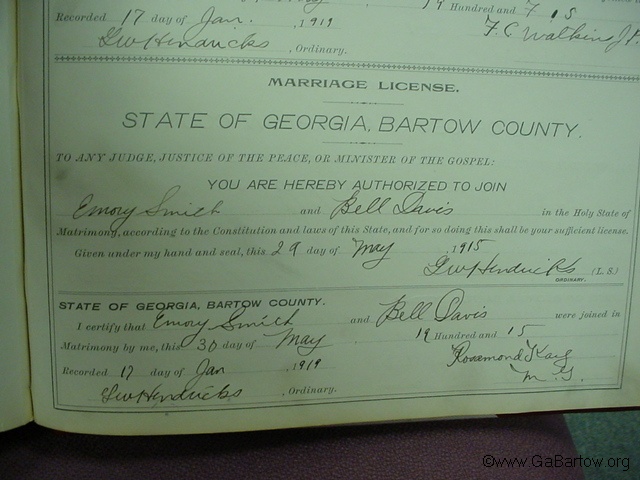 19 Hundred and 15
Recorded 17 day of Jan. 1919
F. C. Walkins J.P.
GW Hendricks, Ordinary.
MARRIAGE LICENSE.
STATE OF GEORGIA, BARTOW COUNTY.
TO ANY JUDGE, JUSTICE OF THE PEACE, OR MINISTER OF THE GOSPEL:
YOU ARE HEREBY AUTHORIZED TO JOIN
Emory Smith and Bell Davis in the Holy State of
Matrimony, according to the Constitution and laws of this State, and for so doing this shall be your sufficient license.
Given under my hand and seal, this 29 day of May 1915
GW Hendricks (L. S.)
ORDINARY.
STATE OF GEORGIA, BARTOW COUNTY.
I certify that Emory Smith and Bell Davis were joined in
Matrimony by me, this 30 day of May 19 Hundred and 15
Recorded 17 day of Jan 1919
Rosamond
M. G.
GW Hendricks, Ordinary.
©www.GaBartow.org